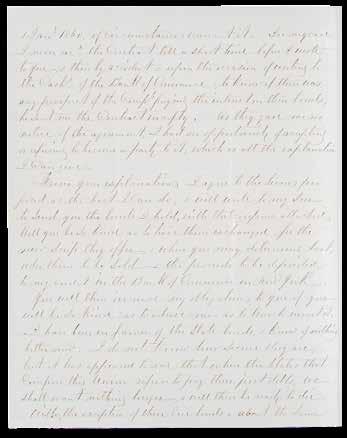 1 Jany 1860, if circumstances warrant it. For myself
I never saw the Contract till a short time before I wrote
to you & then by accident upon the occasion of writing to
the Cash. of the Bank of Commerce, to know if there was
any prospect of the Compy paying the interest on their bonds,
he sent me the Contract in reply. As they gave me no
notice of the agreement I had no opportunity of accepting
or refusing to become a party to it, which is all the explanation
I can give.
From your explanations, I agree to the terms pro
posed as the best I can do, & will write to my Son
to send you the bonds I hold, with that coupons attached.
Will you be so kind as to have them exchanged for the
new they offer, & when you may determine best,
order them to be sold & the proceeds to be deposited
to my credit in the Bank of Commerce in New York.
You will then increase my obligations to you if you
will be so kind as to advise me as to how to invest it.
I have been in favour of the State bonds, & know of nothing
better now. I do not know how secure they are,
but it has appeared to me, that when the States that
Compose this Union refuse to pay their just debts, we
shall want nothing longer & will then be ready to die.
With the exception of these bonds & about the same